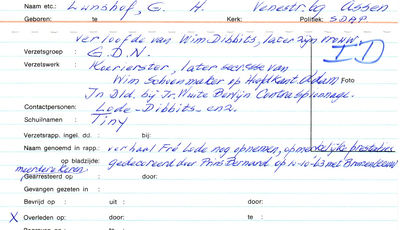 Naam etc.: Lunshof, G. H. Venestr. 69 Assen
Geboren: te Kerk: Politiek: S.D.A.P.
verloofde van Wim Dibbits, later zijn vrouw.
Verzetsgroep : G.D.N. I D
Verzetswerk : Koerierster, later secr.esse van
Wim Schoenmaker op Hoofdkant. Adam Foto
In Dld. bij Jr. Wuite Berlijn Contra Spionnage.
Contactpersonen: Lode-Dibbits-enz.
Schuilnaam : Tiny
Verzetsrapp. ingel. dd. : bij:
Naam genoemd in rapp.: verhaal Fré Lode nog opnemen, opmerkelijke prestaties
op bladzijde: gedecoreerd door Prins Bernard op 10-10-'63 met Bronzenleeuw
meerdere keren
Gearresteerd op : door:
Gevangen gezeten in :
Bevrijd op : uit : door:
X Overleden op: door: te :